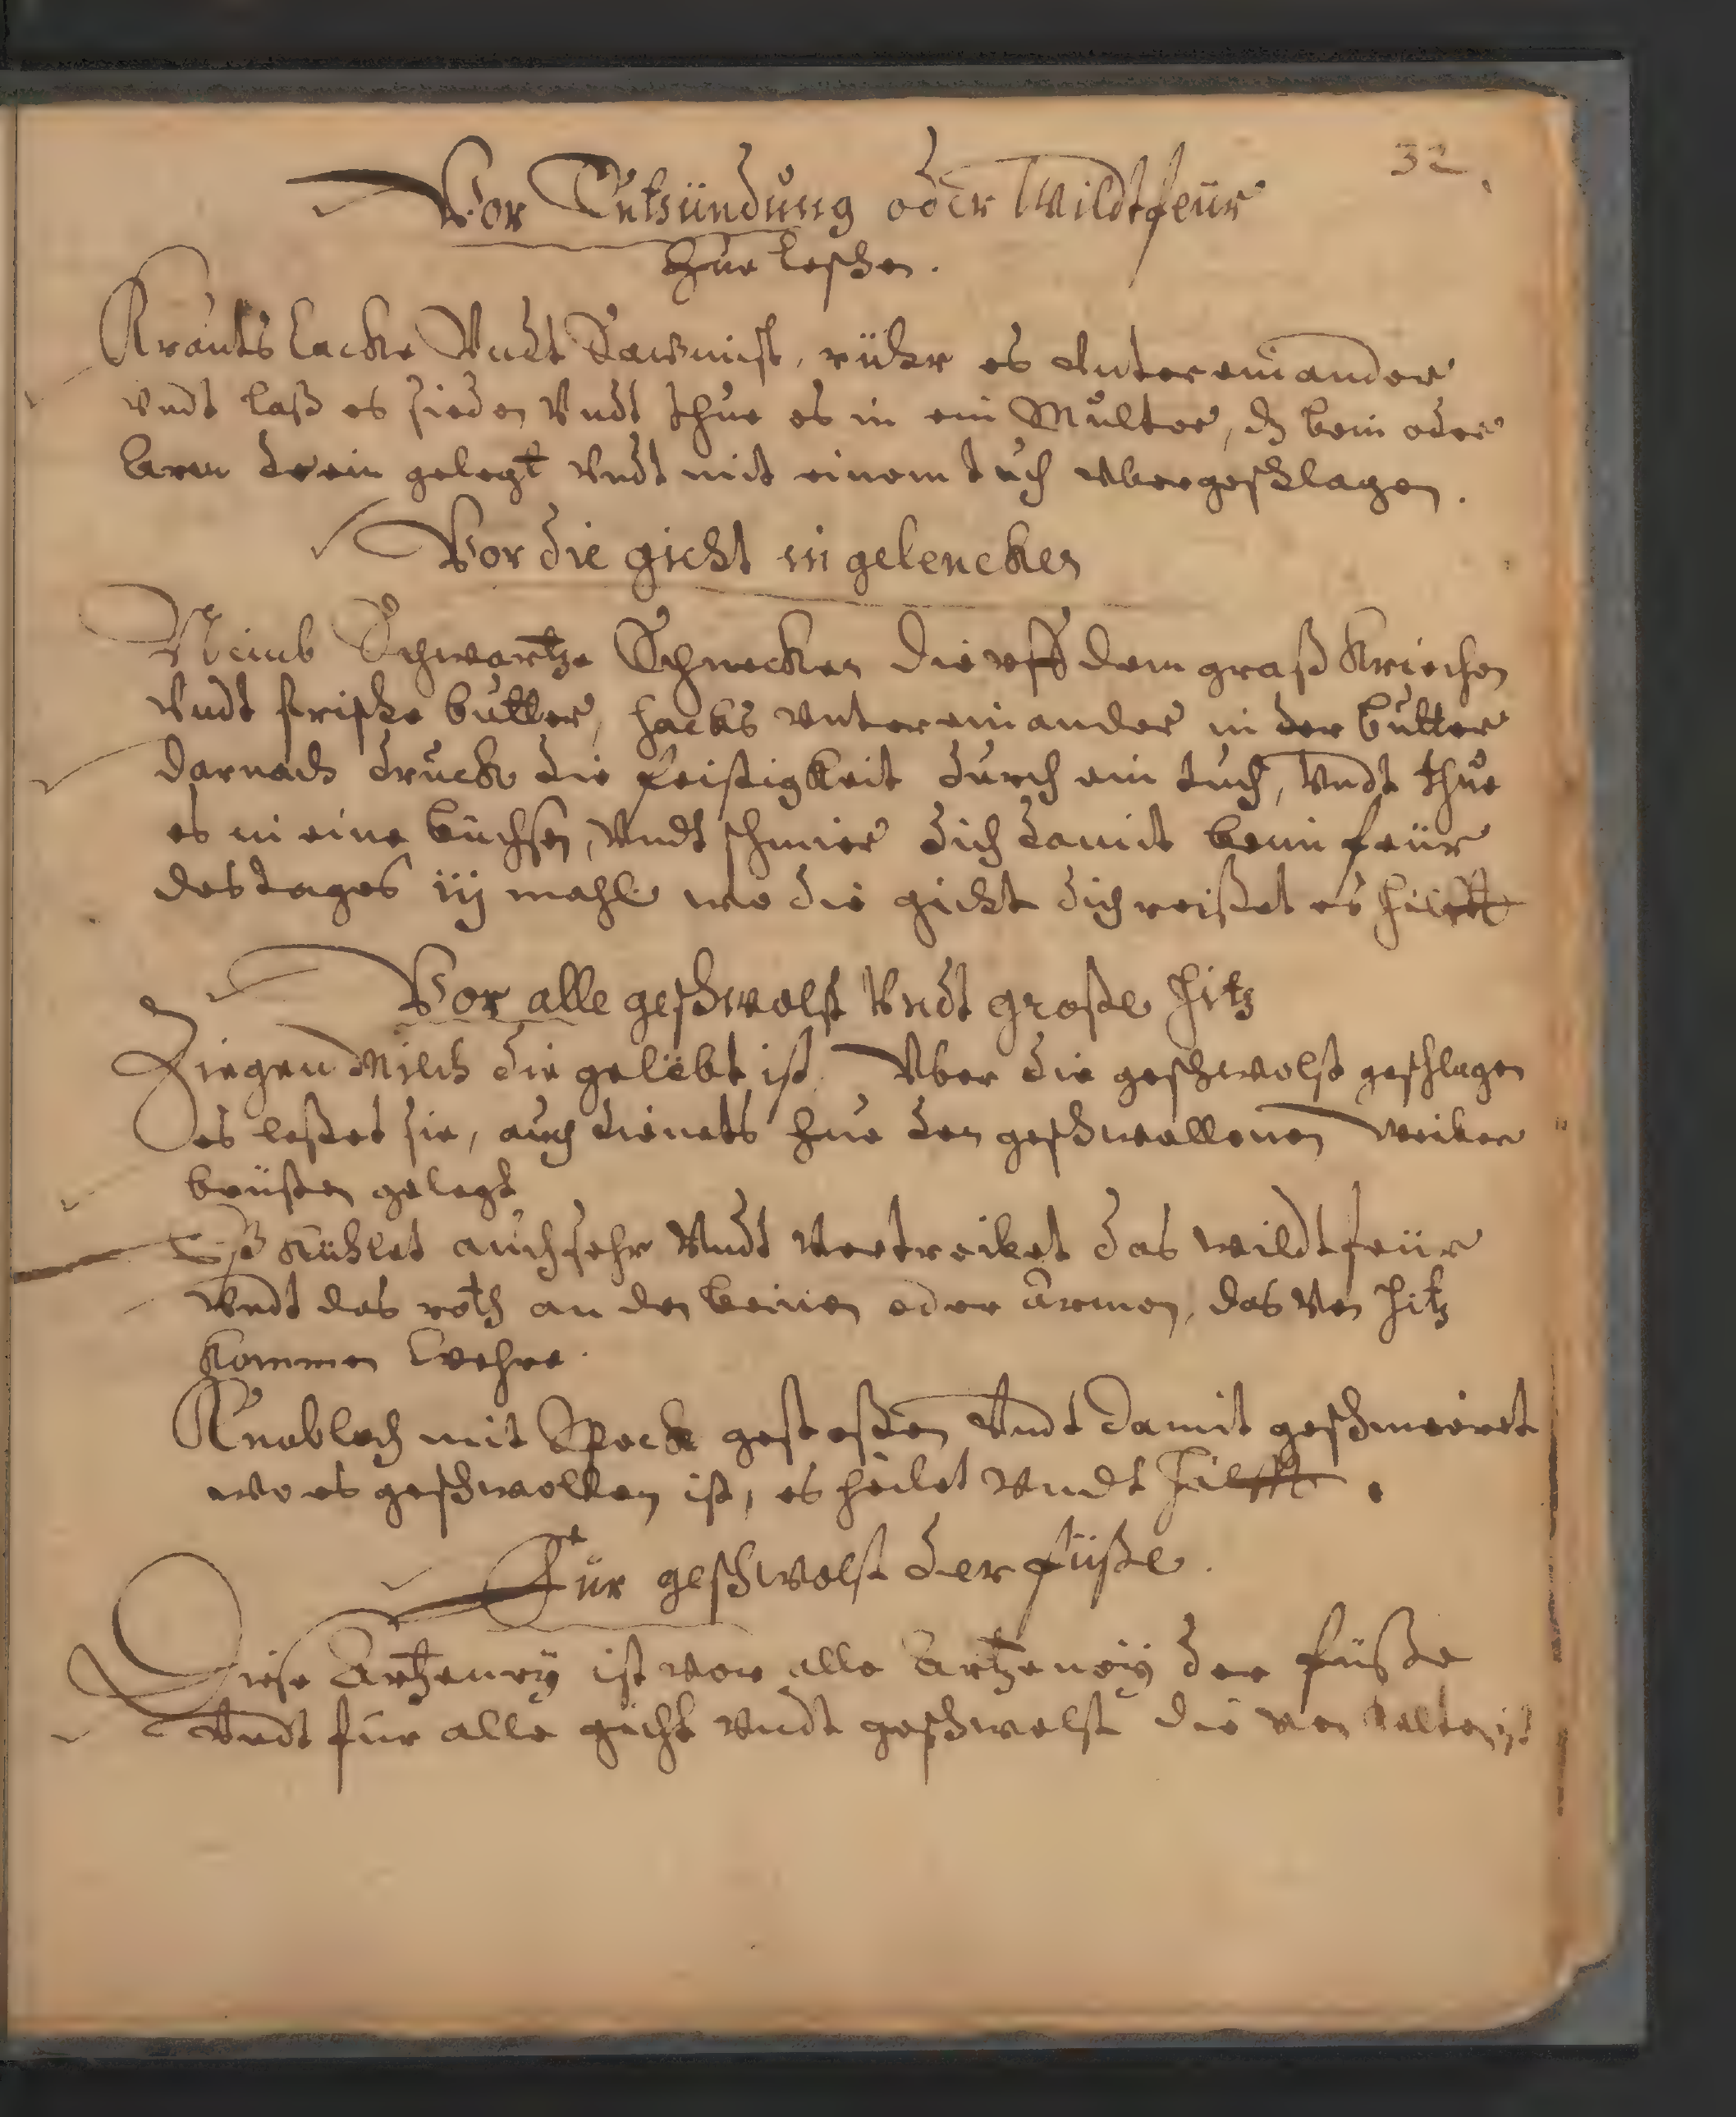 32.
Vor Entzündung oder Wildtfeür
Zue leschen.
Krauts lacke Vndt Sawmist, rühr es Vntereinander
vndt laß es sieden Vndt thue es in ein Multer, dz bein oder
Arm drein gelegt Vndt mit einem tuch vbergeschlagen.
Vor die gicht in gelencken
Nimb Schwartze Schnecken die vff dem graß kriechen
Vndt frische butter, hacks vntereinander in der butter
darnach druck die feistigkeit durch ein tuch, Vndt thue
es in eine büchsen, Vndt schmier dich damit beim feür
des tages iij mahl wo die gicht dich reißet es hilfft
Vor alle geschwolst Vndt große hitz
Ziegen Milch die gelebt ist Vber die geschwolst geschlagen
es leschet sie, auch dienets zue den geschwollenen Weiber
brüsten gelegt
Eß kühlet auch sehr Vndt Vertreibet das wildtfeür
Vndt das roth an den beinen oder Armen, das Von hitz
kommen wehre.
Knobloch mit Speck gestoßen Vndt damit geschmieret
wo es geschwollen ist, es heilet Vndt hilfft.
Für geschwolst der füße.
Diese Artzeney ist vor alle Artzeneÿ der füße
Vndt für alle gicht Vndt geschwolst die von kalten ist